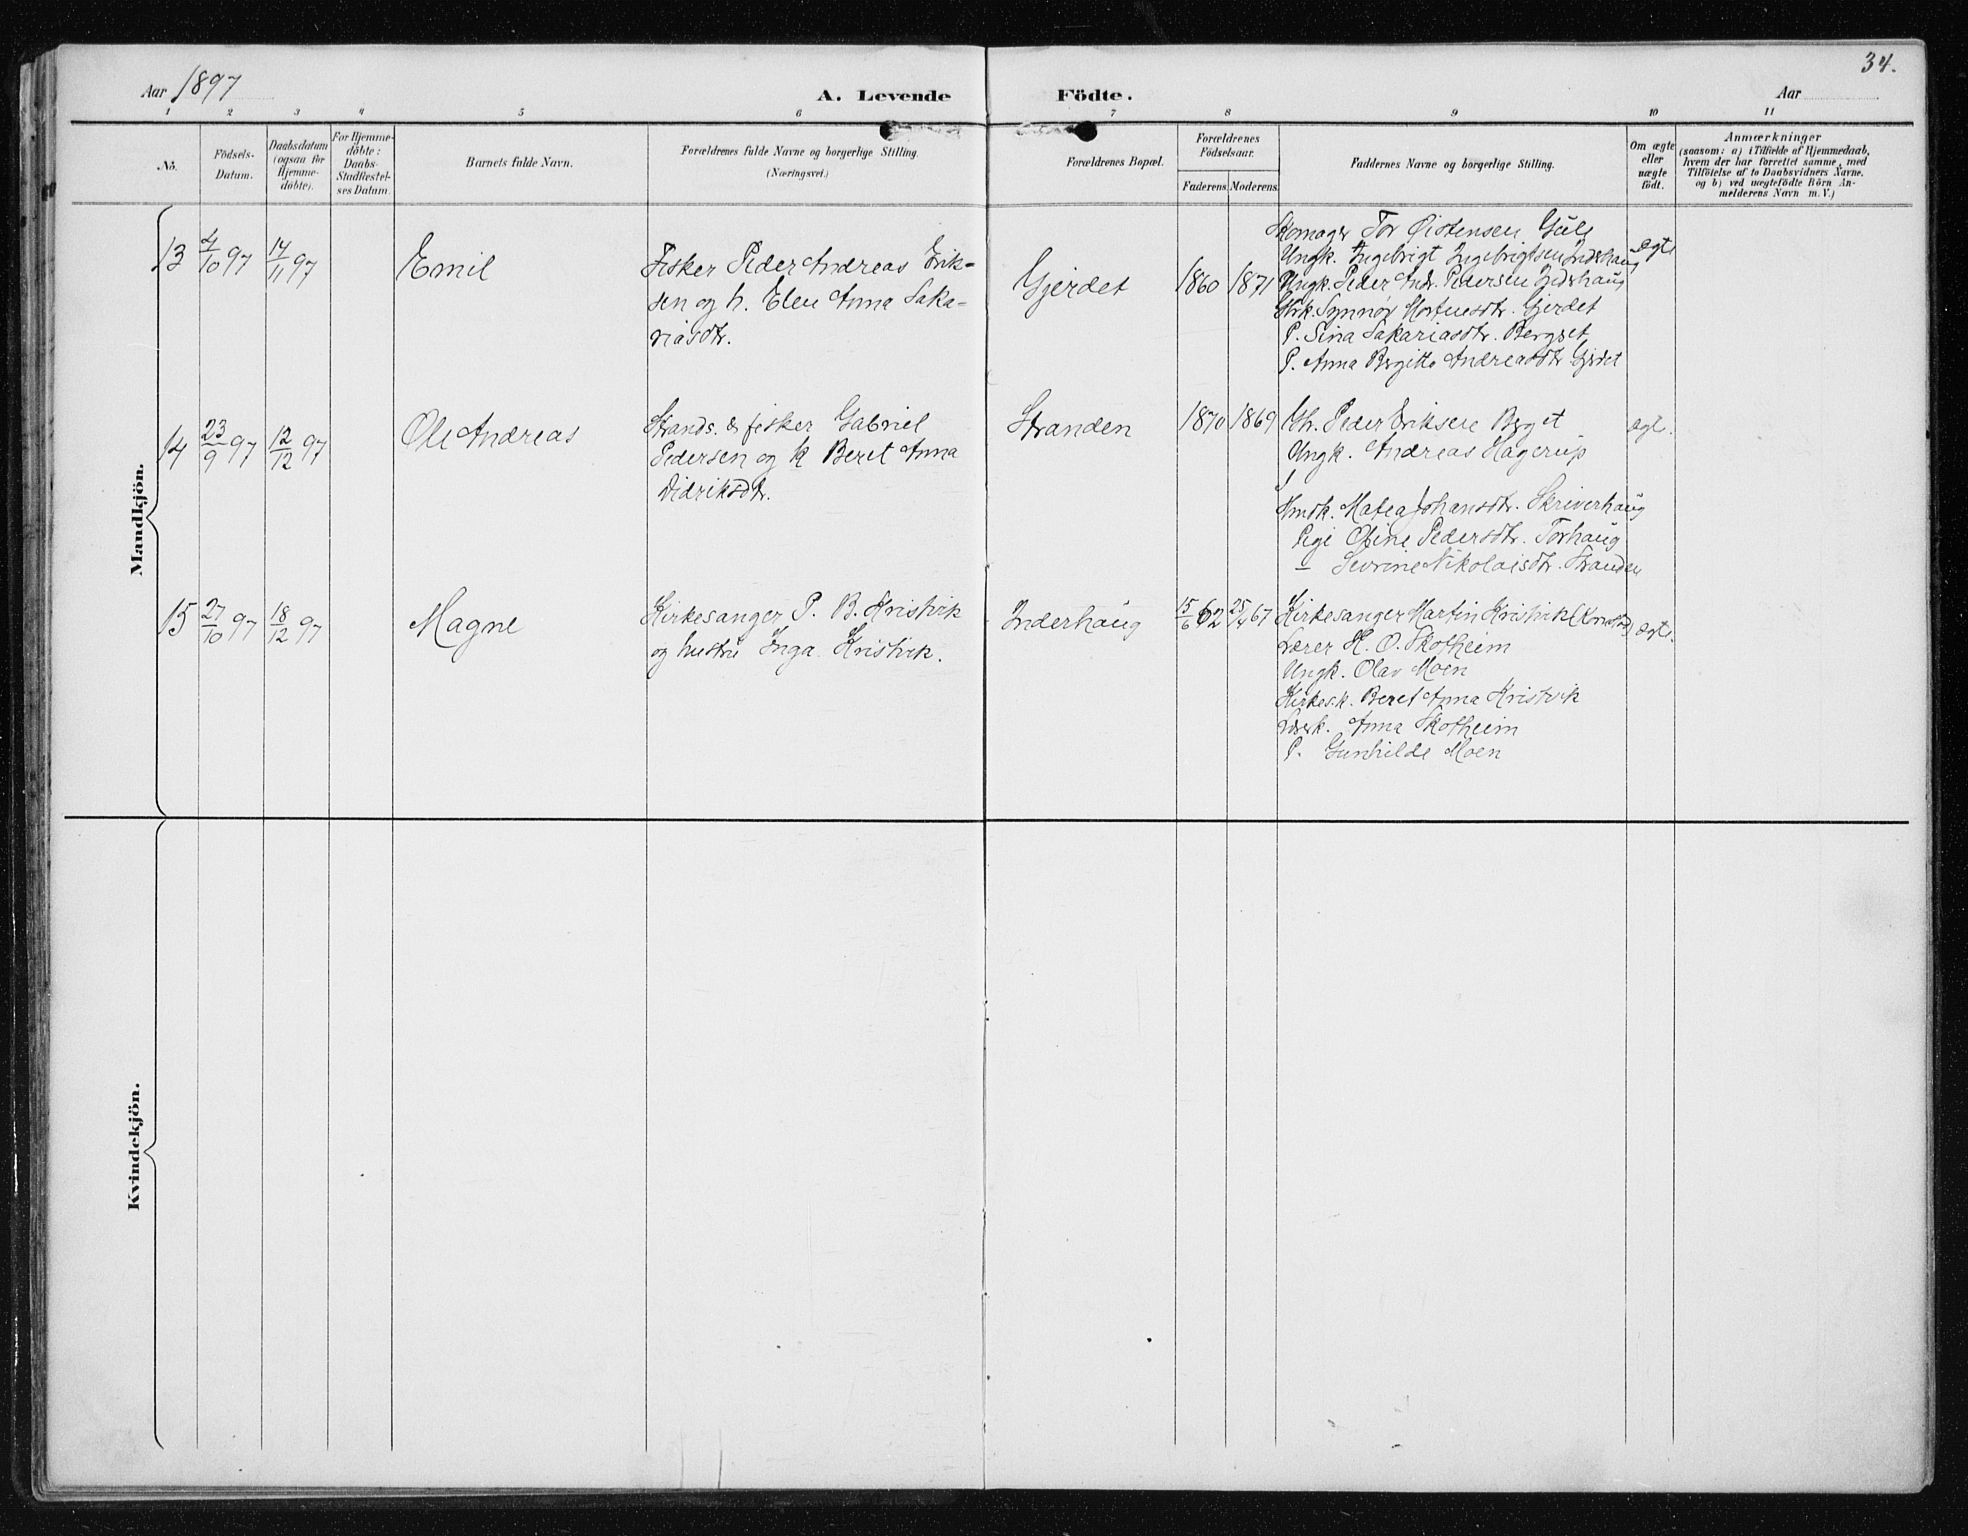 34.
Aar 1897
A. Levende Födte.
Aar
1 2 3 4 5 6 7 8 9 10 11
No.
Födsels-
Datum.
Daabsdatum
(ogsaa för
Hjemme-
döbte).
For Hjemme-
döbte:
Daabs-
Stadfæstel-
ses Datum.
Barnets fulde Navn.
Forældrenes fulde Navne og borgerlige Stilling.
(Næringsvei.)
Forældrenes Bopæl.
Forældrenes
Födselsaar.
Faderens. Moderens.
Faddernes Navne og borgerlige Stilling.
Om ægte
eller
uægte
födt.
Anmærkninger
(saasom: a) i Tilfælde af Hjemmedaab,
hvem der har forrettet samme, med
Tilföielse af to Daabsvidners Navne.
og b) ved uægtefödte Börn An-
melderens Navn m. V.)
Mandkjön.
13 4/10 97 14/11 97 Emil
Fisker Peder Andreas Erik-
sen og h. Elen Anna Saka-
riasdtr.
Gjerdet 1860 1871
Skomager Tor Øistensen Gule
Ungk. Ingebrigt Ingebrigtsen Inderhaug
Ungk. Peder Andr. Pedersen Inderhaug
Synnøv Mortensdtr. Gjerdet
P. Sina Sakariasdtr. Bergset
P. Anna Bergitta Andreasdtr. Gjerdet
ægte
14 23/9 97 12/12 97 Ole Andreas
Strands. & fisker Gabriel
Pedersen og k Beret Anna
Didriksdtr.
Stranden 1870 1869
Gbr. Peder Eriksen Berget
Ungk. Andreas Hagerup
Hmdk. Matea Johansdtr. Skriverhaug
Pige Oline Pedersdtr. Torhaug
— Sevrine Nikolaisdtr. Stranden
ægte.
15 27/10 97 18/12 97 Magne
Kirkesanger P. B. Kristvik
og hustru Inga Kristvik.
Inderhaug 15/6 62 25/4 67
Kirkesanger Martin Kristvik
Lærer H. O. Skotheim
Ungk. Olav Moen
Kirkes.k. Beret Anna Kristvik
Lærerk. Anna Skotheim
P. Gunhilde Moen
ægte.
Kvindekjön.